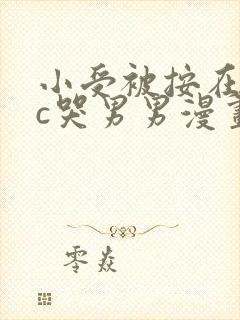 小受被按在
c哭男男漫畫
零焱